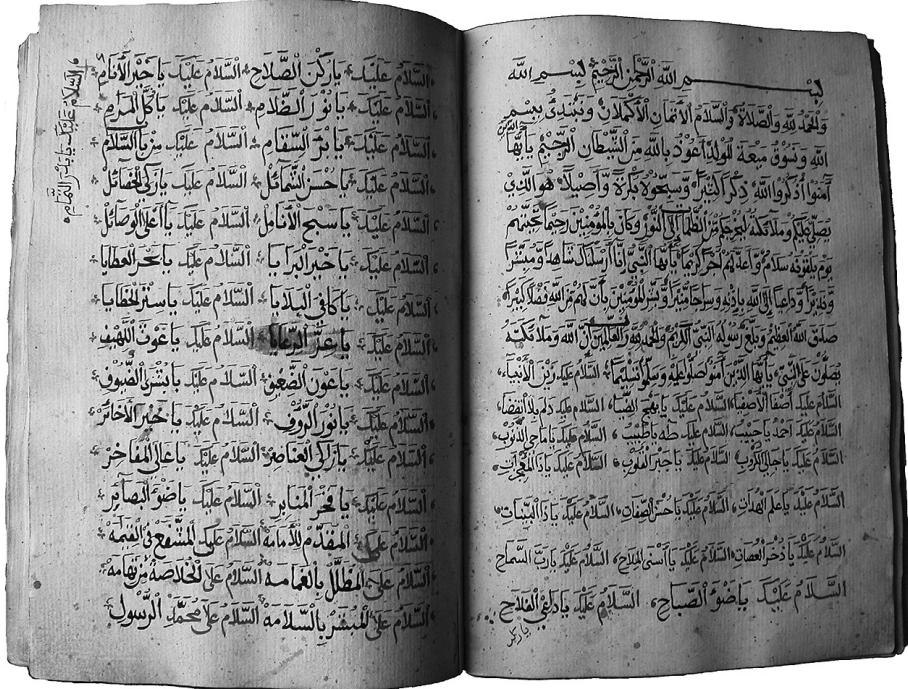 بِسْمِ اللّٰهِ الرَّحْمٰنِ الرَّحِيْمِ بِسْمِ اللّٰه
وَالْحَمْدُ لِلّٰهِ وَالصَّلَاةُ وَالسَّلَامُ الْأَتَمَّانِ الْأَكْمَلَانِ وَنَبْتَدِئُ بِبِسْمِ
اللّٰهِ وَنَسُوْقُ اعُوْذُ بِاللّٰهِ مِنَ الشَّيْطَانِ الرَّجِيْمِ يَا اَيُّهَا
آمَنُوا اذْكُرُوا اللّٰهَ ذِكْرًا كَثِيْرًا وَسَبِّحُوْهُ بُكْرَةً وَأَصِيْلًا هُوَ الَّذِيْ
يُصَلِّي عَلَيْكُمْ وَمَلَائِكَتُهُ لِيُخْرِجَكُمْ مِنَ الظُّلُمَاتِ إِلَى النُّوْرِ وَكَانَ بِالْمُؤْمِنِيْنَ رَحِيْمًا تَحِيَّتُهُمْ
يَوْمَ يَلْقَوْنَهُ سَلَامٌ وَأَعَدَّ لَهُمْ أَجْرًا كَرِيْمًا يَا أَيُّهَا النَّبِيُّ إِنَّا أَرْسَلْنَاكَ شَاهِدًا وَمُبَشِّرًا
وَنَذِيْرًا وَدَاعِيًا إِلَى اللّٰهِ بِإِذْنِهِ وَسِرَاجًا مُنِيْرًا وَبَشِّرِ الْمُؤْمِنِيْنَ بِأَنَّ لَهُمْ مِنَ اللّٰهِ فَضْلًا كَبِيْرًا
صَدَقَ اللّٰهُ الْعَظِيْمُ وَبَلَّغَ رَسُوْلُهُ النَّبِيُّ الْكَرِيْمُ وَالْحَمْدُ لِلّٰهِ رَبِّ الْعَالَمِيْنَ إِنَّ اللّٰهَ وَمَلَائِكَتَهُ
يُصَلُّوْنَ عَلَى النَّبِيِّ يَا أَيُّهَا الَّذِيْنَ آمَنُوا صَلُّوا عَلَيْهِ وَسَلِّمُوا تَسْلِيْمًا السَّلَامُ عَلَيْكَ زَيْنَ الْأَنْبِيَاءِ
السَّلَامُ عَلَيْكَ أَصْفَى الْأَصْفِيَاءِ السَّلَامُ عَلَيْكَ السَّلَامُ عَلَيْكَ دَائِمٌ بِلَا انْقِضَاءِ
السَّلَامُ عَلَيْكَ أَحْمَدْ يَا حَبِيْبِ السَّلَامُ عَلَيْكَ طٰهٰ يَا طَبِيْبِ السَّلَامُ عَلَيْكَ يَا مَاحِي الذُّنُوْبِ
السَّلَامُ عَلَيْكَ يَا جَالِي الْكُرُوْبِ السَّلَامُ عَلَيْكَ السَّلَامُ عَلَيْكَ يَا ذَا الْمُعْجِزَاتِ
السَّلَامُ عَلَيْكَ يَا السَّلَامُ عَلَيْكَ يَا حُسْنَ الصِّفَاتِ السَّلَامُ عَلَيْكَ يَا ذَا الْبَيِّنَاتِ
السَّلَامُ عَلَيْكَ يَا ذُخْرَ الْعُصَاتِ السَّلَامُ عَلَيْكَ يَا السَّلَامُ عَلَيْكَ يَا رَبَّ السَّمَاحِ
السَّلَامُ عَلَيْكَ يَا ضَوْءَ الصَّبَاحِ السَّلَامُ عَلَيْكَ يَا دَاعِي الْفَلَاحِ
اَلسَّلَامُ عَلَيْكَ يَا رُكْنَ الصَّلَاحِ اَلسَّلَامُ عَلَيْكَ يَا خَيْرَ الْأَنَامِ
اَلسَّلَامُ عَلَيْكَ يَا نُوْرَ الظَّلَامِ اَلسَّلَامُ عَلَيْكَ يَا كُلَّ الْمَرَامِ
اَلسَّلَامُ عَلَيْكَ يَا السِّقَامِ اَلسَّلَامُ عَلَيْكَ مِنْ رَبِّ السَّلَامِ
اَلسَّلَامُ عَلَيْكَ يَا حُسْنَ الشَّمَائِلْ اَلسَّلَامُ عَلَيْكَ يَا زَاكِي الْخَصَائِلْ
اَلسَّلَامُ عَلَيْكَ يَا سَبِحَ الْأَنَامِلْ اَلسَّلَامُ عَلَيْكَ يَا أَعْلَى الْوَصَائِلْ
اَلسَّلَامُ عَلَيْكَ يَا خَيْرَ الْبَرَايَا اَلسَّلَامُ عَلَيْكَ يَا بَحْرَ الْعَطَايَا
اَلسَّلَامُ عَلَيْكَ يَا كَافِي الْبَلَايَا اَلسَّلَامُ عَلَيْكَ يَا سِتْرَ الْخَطَايَا
اَلسَّلَامُ عَلَيْكَ يَا عِزَّ الرَّعَايَا اَلسَّلَامُ عَلَيْكَ يَا غَوْثَ اللَّهِيْفِ
اَلسَّلَامُ عَلَيْكَ يَا عَوْنَ الضَّعِيْفِ اَلسَّلَامُ عَلَيْكَ يَا بُشْرَى الضُّيُوْفِ
اَلسَّلَامُ عَلَيْكَ يَا نُوْرَ الرَّؤُوْفِ اَلسَّلَامُ عَلَيْكَ يَا خَيْرَ الْأَخَائِرْ
اَلسَّلَامُ عَلَيْكَ يَا زَاكِي الْعَنَاصِرْ اَلسَّلَامُ عَلَيْكَ يَا عَالِي الْمَفَاخِرْ
اَلسَّلَامُ عَلَيْكَ يَا فَخْرَ الْمَنَابِرْ اَلسَّلَامُ عَلَيْكَ يَا ضَوْءَ الْبَصَائِرْ
اَلسَّلَامُ عَلَى الْمُقَدَّمِ لِلْأَمَامَةْ اَلسَّلَامُ عَلَى الْمُشَفَّعِ فِي الْقِيٰمَهْ
اَلسَّلَامُ عَلَى الْمُظَلَّلِ بِالْغَمَامَهْ اَلسَّلَامُ عَلَى الْخُلَاصَةْ مِنْ تِهَامَهْ
اَلسَّلَامُ عَلَى الْمُبَشَّرِ بِالسَّلَامَهْ اَلسَّلَامُ عَلَى مُحَمَّدِ الرَّسُوْلِ
اَلسَّلَامُ عَلَيْكَ يَا بَدْرَ التَّمَامِ